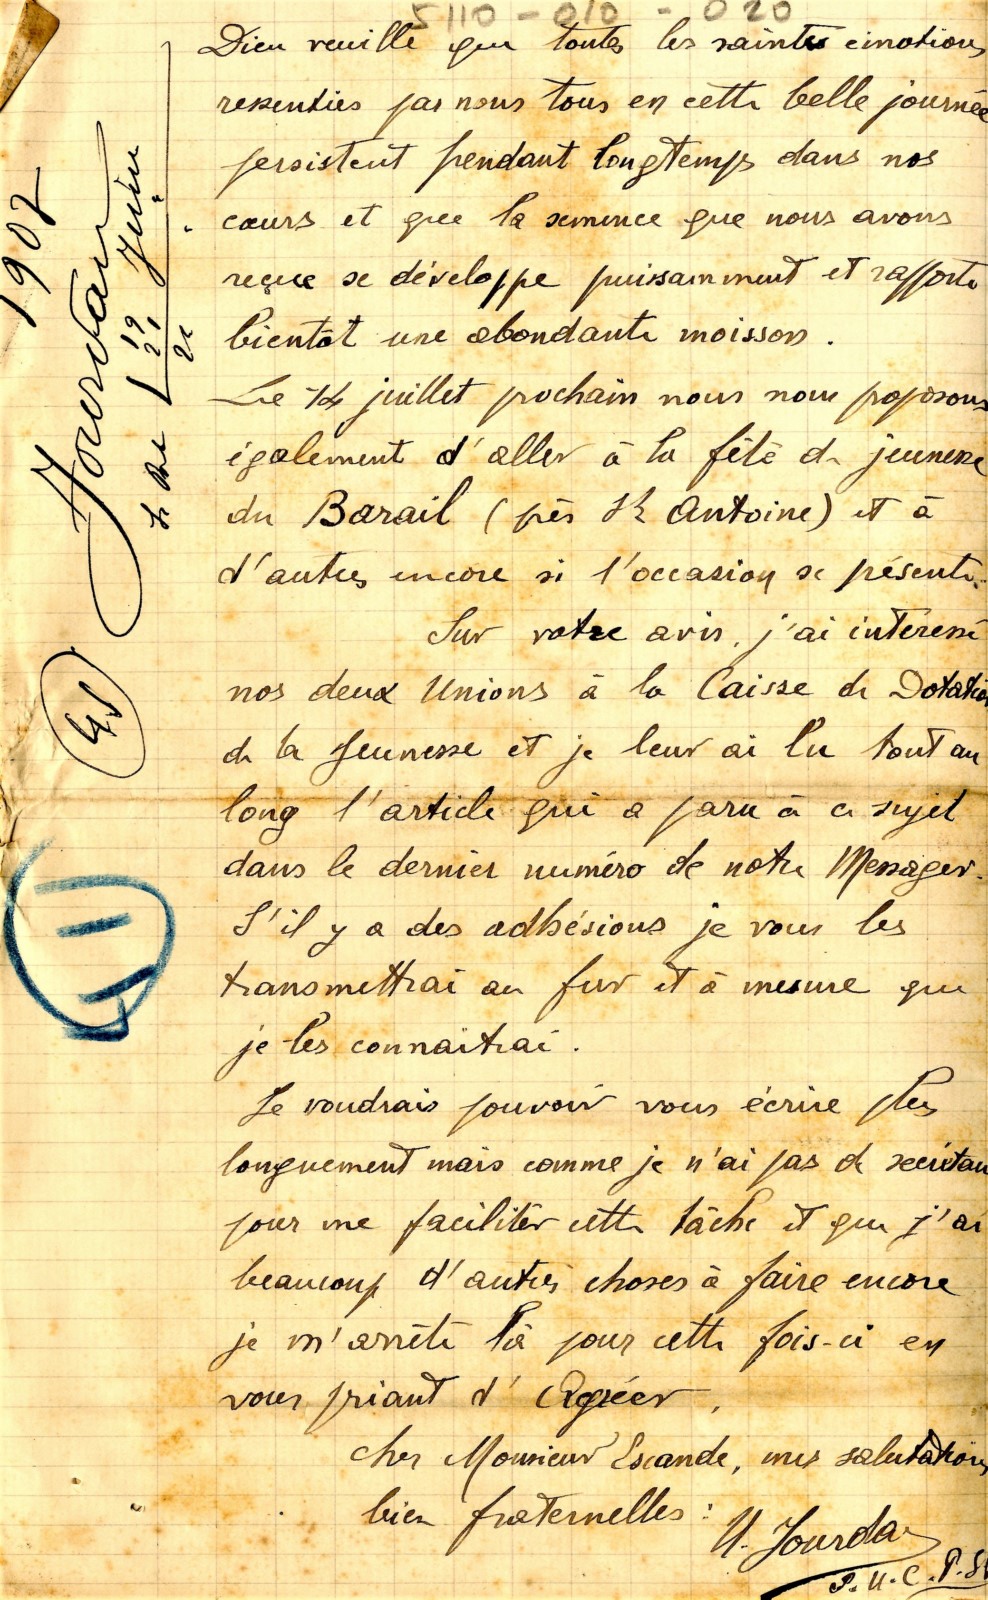 5110 - 010 - 020
Dieu veuille que toutes les saintes émotions
ressenties par nous tous en cette belle journée
persistent pendant longtemps dans nos
cœurs et que la semence que nous avons
reçue se développe puissamment et rapporte
bientôt une abondante moisson.
Le 14 juillet prochain nous nous proposons
également d'aller à la fête de jeunesse
du Barail (près St Antoine) et à
d'autres encore si l'occasion se présente.
Sur votre avis, j'ai intéressé
nos deux Unions à la Caisse de Dotation
de la Jeunesse et je leur ai lu tout au
long l'article qui a paru à ce sujet
dans le dernier numéro de notre Messager.
S'il y a des adhésions je vous les
transmettrai au fur et à mesure que
je les connaîtrai.
Je voudrais pouvoir vous écrire plus
longuement mais comme je n'ai pas de secrétai
pour me faciliter cette tâche et que j'ai
beaucoup d'autres choses à faire encore
je m'arrête là pour cette fois-ci en
vous priant d'Agréer,
cher Monsieur Escande, mes salutations
bien fraternelles :
U. Jourdan
P.U.C.P.St
1902
Jourdan
19 Juin
21